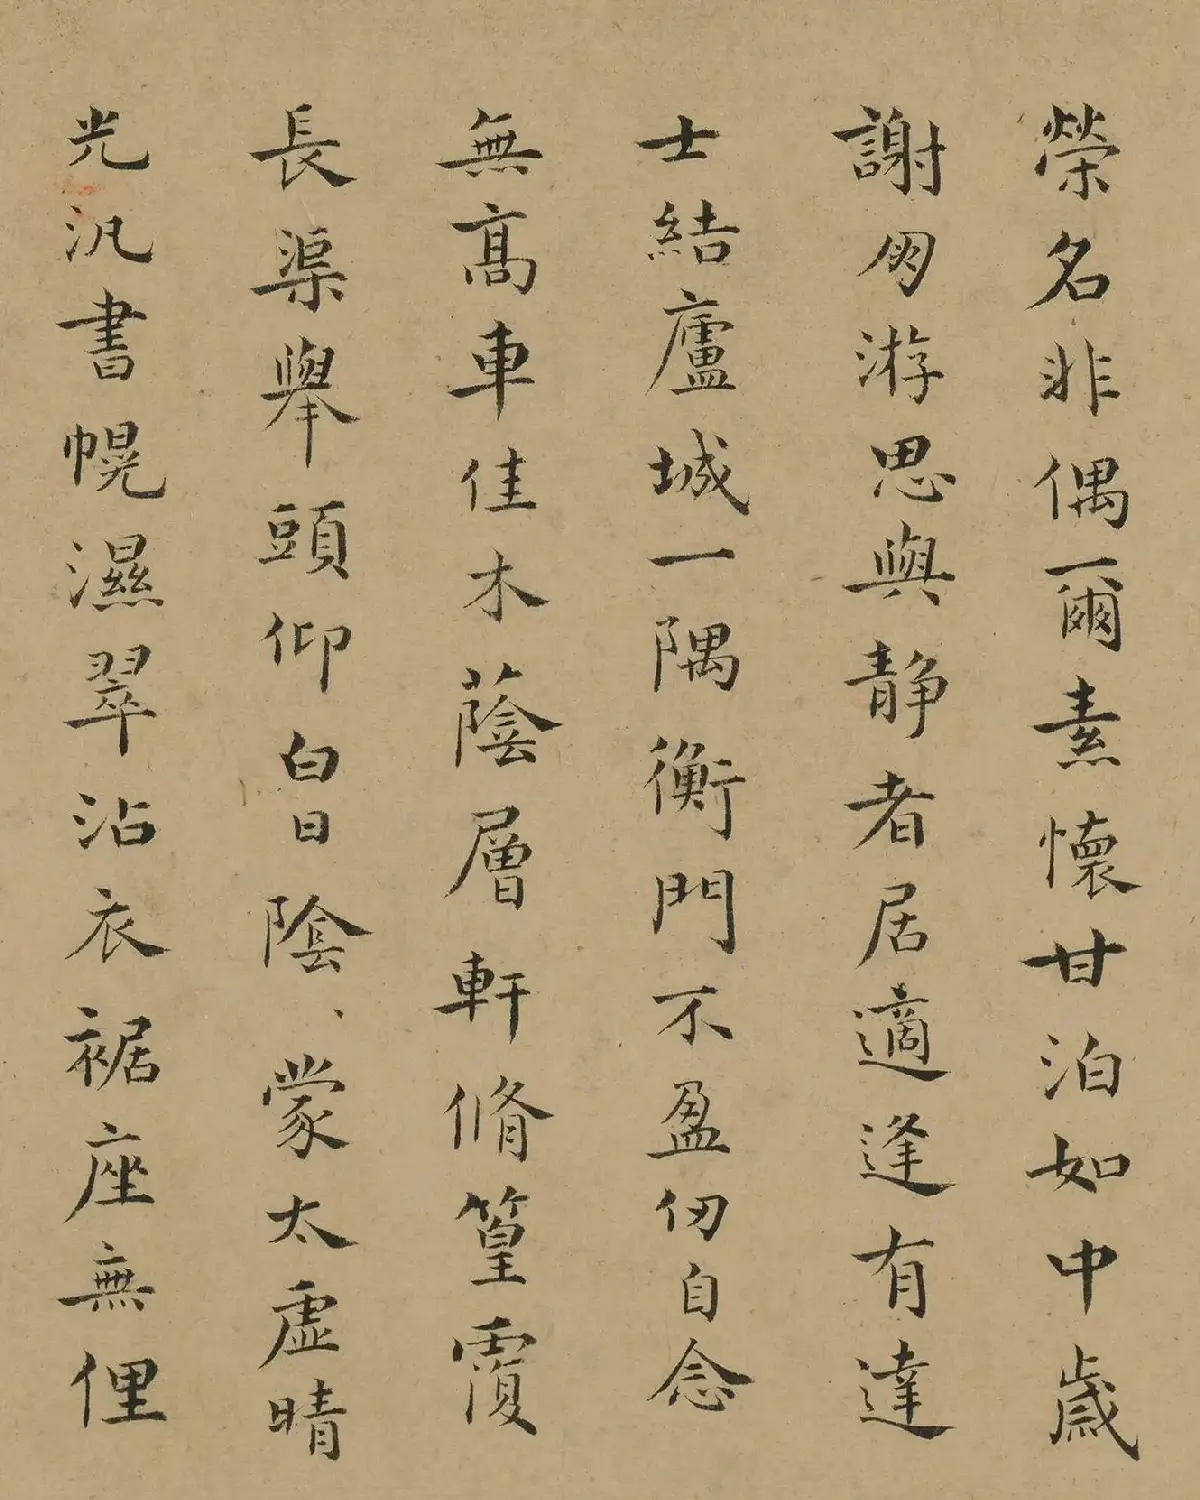 榮名非偶爾素懷甘泊如中歲
謝朋游思與靜者居適逢有達
士結廬城一隅衡門不盈仞自念
無高車佳木蔭層軒脩篁覆
長渠舉頭仰白日陰、蒙太虛晴
光汎書幌濕翠沾衣裾座無俚